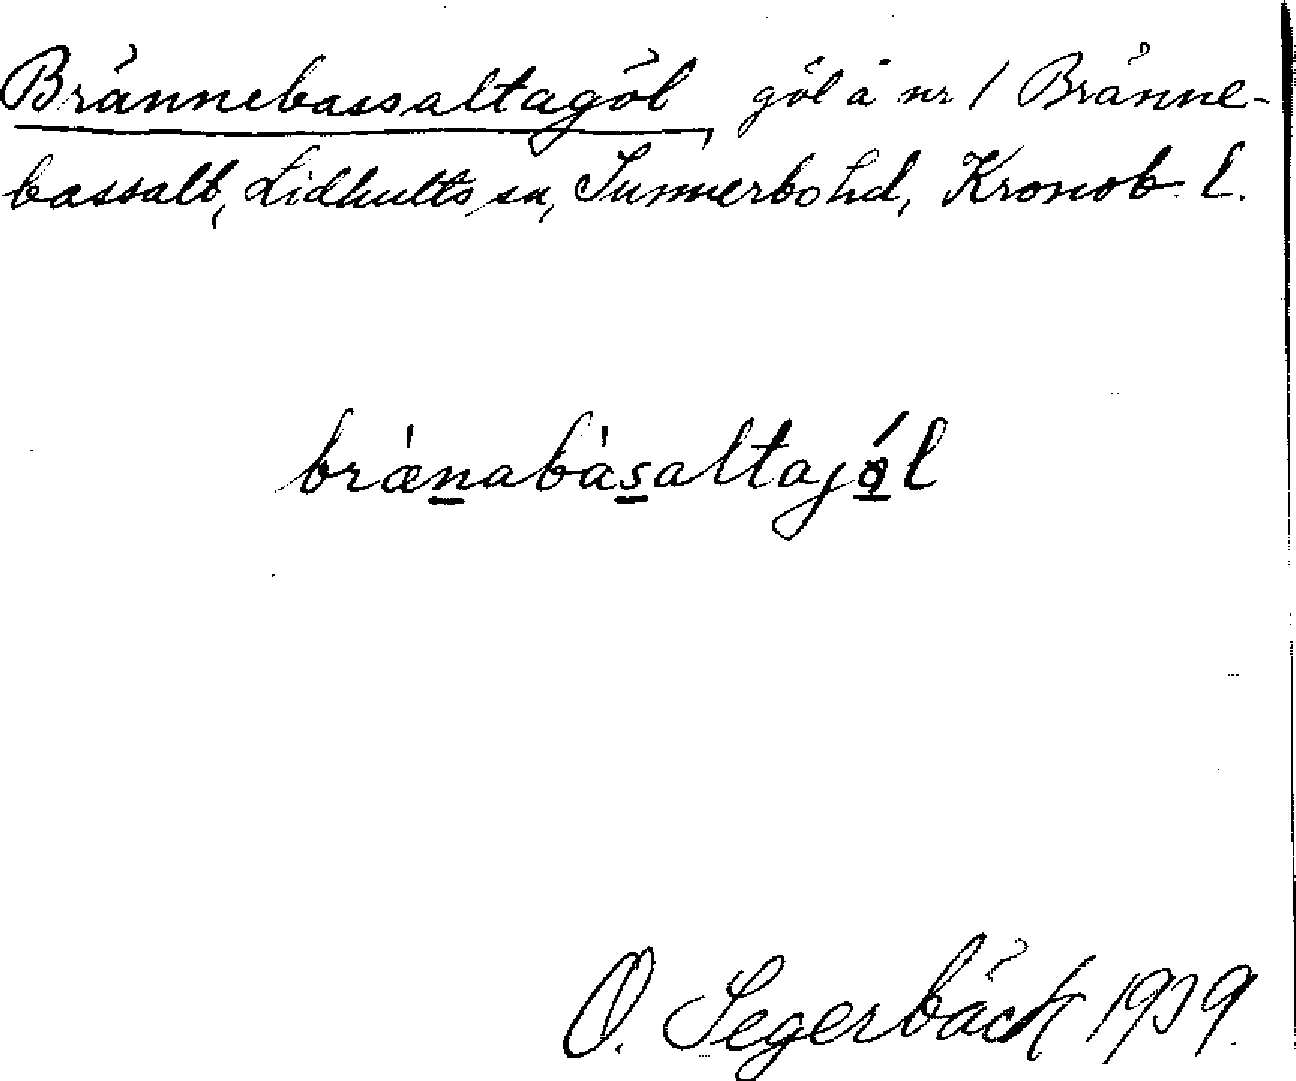 Brännebassaltagöl, göl å nr 1 Bränne-
bassalt, Lidhults sn, Sunnerbo hd, Kronob. l.
brǽnabàsaltajǫ́l
O. Segerbäck 1939.